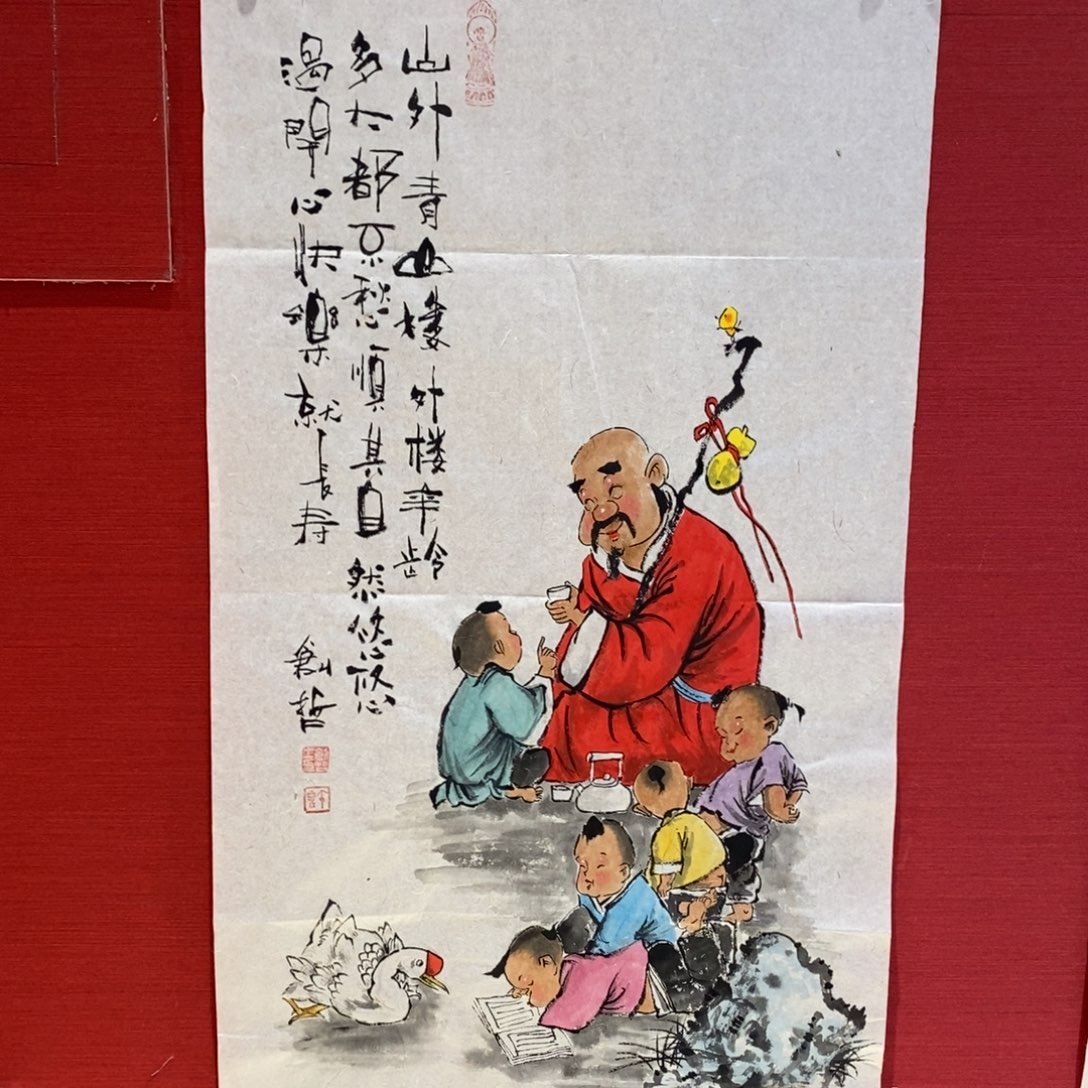 山外青山楼外楼年龄
多大都不愁順其自然悠悠
過開心快樂就長寿
創哲